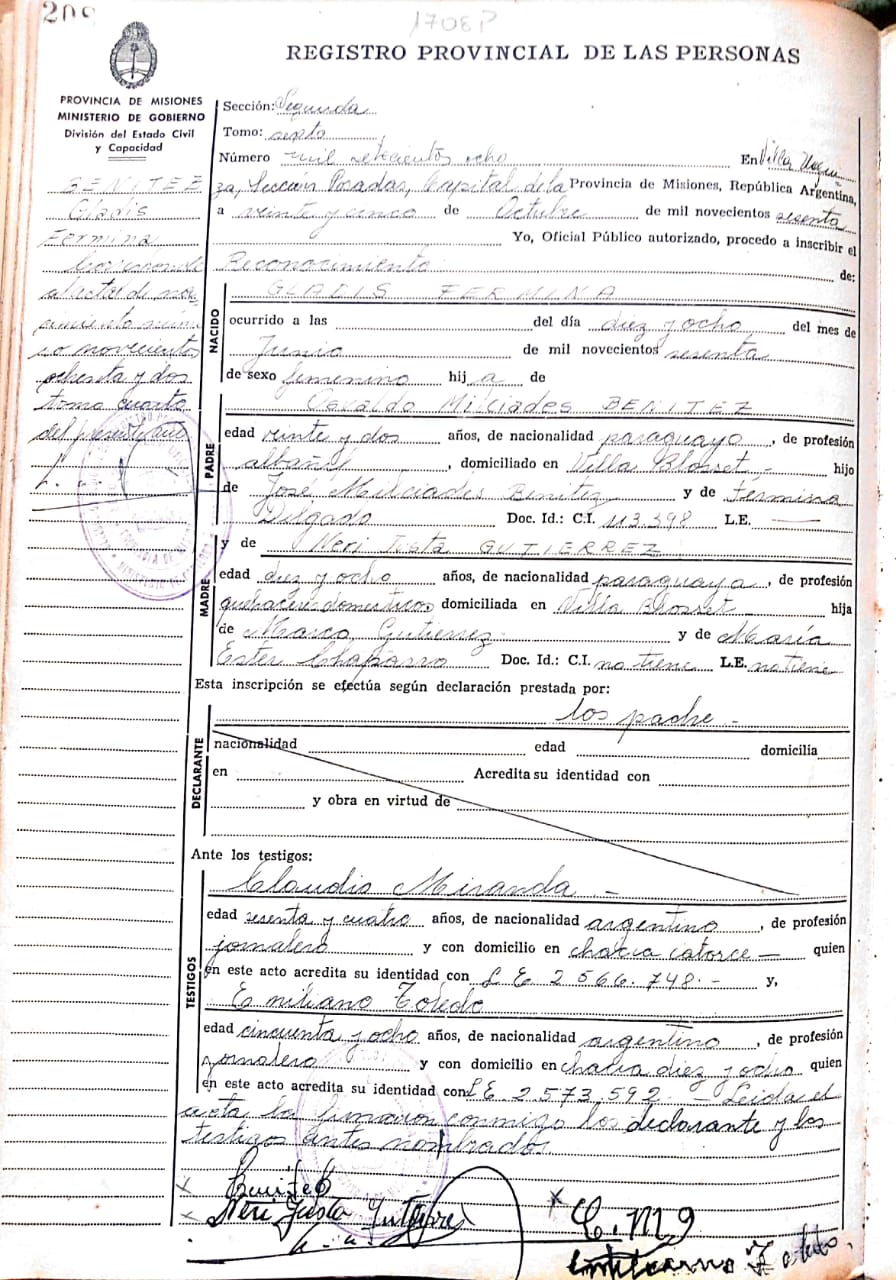 209
1708P
REGISTRO PROVINCIAL DE LAS PERSONAS
PROVINCIA DE MISIONES
MINISTERIO DE GOBIERNO
División del Estado Civil
y Capacidad
BENITEZ
Gladis
Fermina
Corresponde
al acta de na
cimiento núme
ro novecientos
ochenta y dos
tomo cuarto
del
Sección: Segunda
Tomo: sexto
Número mil setecientos ocho En Villa Urqui
za, Sección Posadas, Capital de la Provincia de Misiones, República Argentina,
a veinte y cinco de Octubre de mil novecientos sesenta
Yo, Oficial Público autorizado, procedo a inscribir el
Reconocimiento de:
NACIDO
GLADIS FERMINA
ocurrido a las del día diez y ocho del mes de
Junio de mil novecientos sesenta
de sexo femenino hij a de
PADRE
Osvaldo Milciades BENITEZ
edad veinte y dos años, de nacionalidad paraguayo, de profesión
albañil, domiciliado en Villa Blosset - hijo
de José Milciades Benitez y de Fermina
Delgado Doc. Id.: C.I. 113.398 L.E. —
MADRE
y de Neri Justa GUTIERREZ
edad diez y ocho años, de nacionalidad paraguaya, de profesión
quehaceres domesticos domiciliada en Villa Blosset hija
de Marco Gutierrez y de María
Ester Chaparro Doc. Id.: C.I. no tiene L.E. no tiene
Esta inscripción se efectúa según declaración prestada por:
los padre -
DECLARANTE
nacionalidad edad domicilia
en Acredita su identidad con
y obra en virtud de
Ante los testigos:
TESTIGOS
Claudio Miranda -
edad sesenta y cuatro años, de nacionalidad argentino, de profesión
jornalero y con domicilio en chacra catorce — quien
en este acto acredita su identidad con L E 2.566.748.- y,
Emiliano Toledo
edad cincuenta y ocho años, de nacionalidad argentino, de profesión
jornalero y con domicilio en chacra diez y ocho quien
en este acto acredita su identidad con L E 2.573.592 - Leida el
acta la firmaron conmigo los declarante y los
testigos antes nombrados.
Benitez
Neri Justa Gutierrez
C. M g